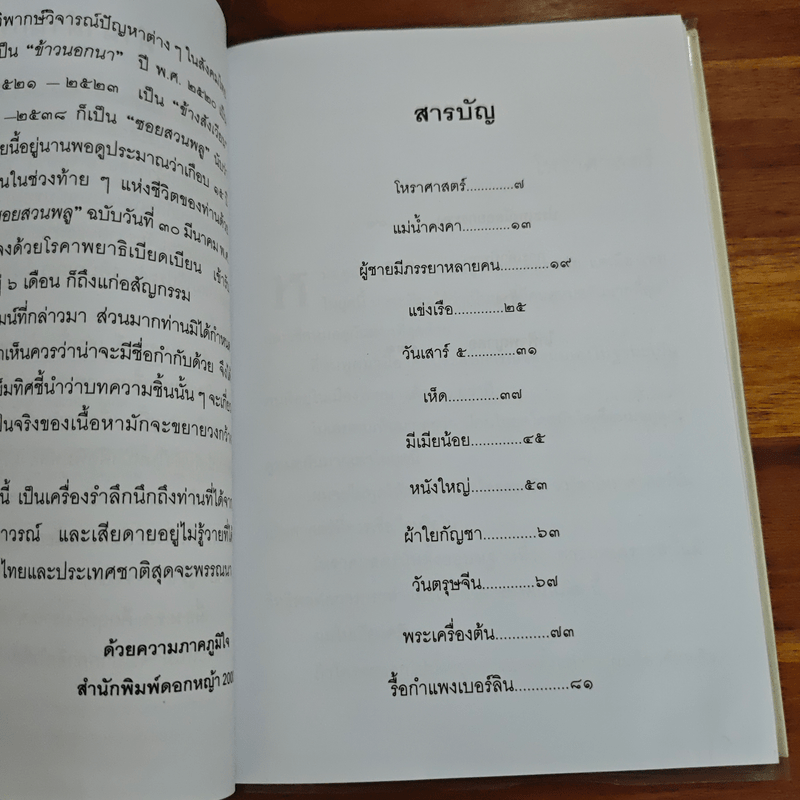 วิพากษ์วิจารณ์ปัญหาต่าง ๆ ในสังคมไทย
ป็น “ข้าวนอกนา” ปี พ.ศ. ๒๕๒๐
๕๒๑ – ๒๕๒๓ เป็น “ข้างสังเวียน”
– ๒๕๓๘ ก็เป็น “ซอยสวนพลู”
ยนี้อยู่นานพอดูประมาณว่าเกือบ ๑๕ ปี
นในช่วงท้าย ๆ แห่งชีวิตของท่านด้วย
ซอยสวนพลู” ฉบับวันที่ ๓๐ มีนาคม พ.ศ.
งด้วยโรคาพยาธิเบียดเบียน
๖ เดือน ก็ถึงแก่อสัญกรรม
มน์ที่กล่าวมา ส่วนมากท่านมิได้กำหนด
าเห็นควรว่าน่าจะมีชื่อกำกับด้วย
ข็มทิศชี้นำว่าบทความชิ้นนั้น ๆ จะเกี่ย
ป็นจริงของเนื้อหามักจะขยายวงกว้า
นี้ เป็นเครื่องรำลึกนึกถึงท่านที่ได้จาก
าวรณ์ และเสียดายอยู่ไม่รู้วายที่ได้
ไทยและประเทศชาติสุดจะพรรณนา
ด้วยความภาคภูมิใจ
สำนักพิมพ์ดอกหญ้า 200
สารบัญ
โหราศาสตร์.............๗
แม่น้ำคงคา.............๑๓
ผู้ชายมีภรรยาหลายคน.............๑๙
แข่งเรือ.............๒๕
วันเสาร์ ๕.............๓๑
เห็ด.............๓๗
มีเมียน้อย.............๔๕
หนังใหญ่.............๕๓
ผ้าใยกัญชา.............๖๓
วันตรุษจีน.............๖๗
พระเครื่องต้น.............๗๓
รื้อกำแพงเบอร์ลิน.............๘๑